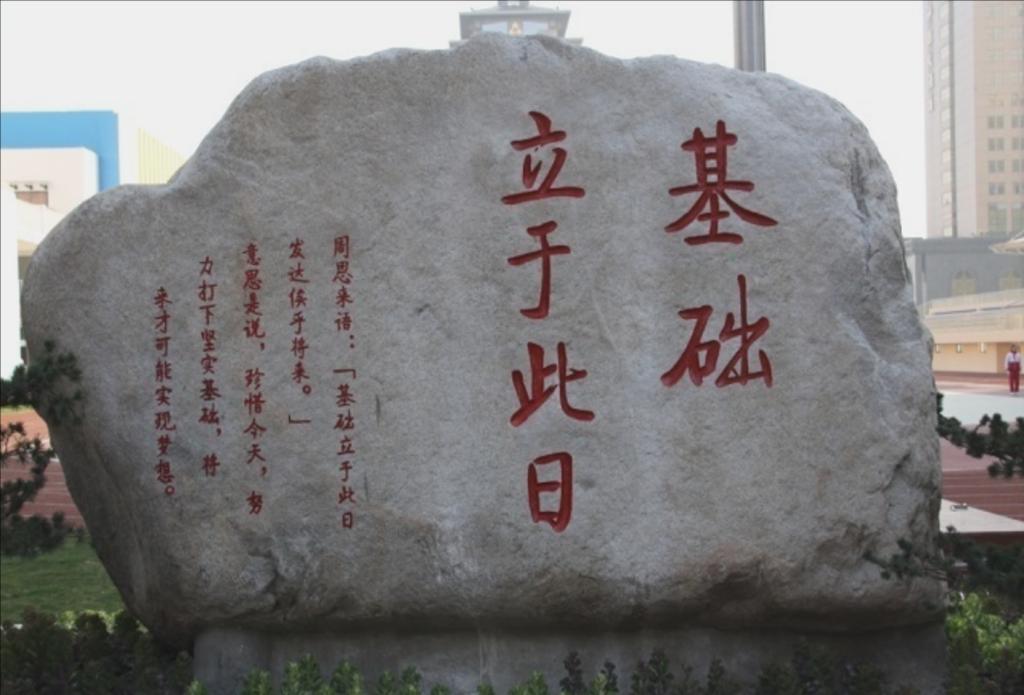 基础
立于此日
周恩来语：「基础立于此日
发达俟乎将来。」
意思是说，珍惜今天，努
力打下坚实基础，将
来才可能实现梦想。